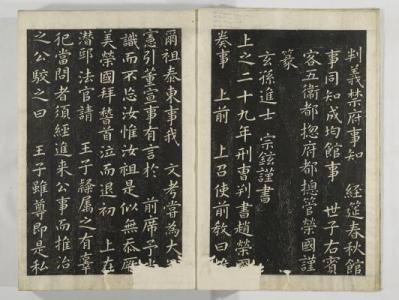 判義禁府事知 經筵春秋館
事同知成均館事 世子右賓
客五衛都摠府都摠管榮國謹
篆
玄孫進士 宗鉉謹書
上之二十九年刑曹判書趙榮國
奏事 上前 上召使前敎曰
爾祖泰東事我 文考嘗為大
憲引董宣事有言於 前席予尚
識而不忘汝惟汝祖是似無忝厥
美榮國拜稽首泣而退初 上在
潛邸法官請 王子隷属之有辜
犯當問者須經進來公事而推治
之公駮之曰 王子雖尊即是私